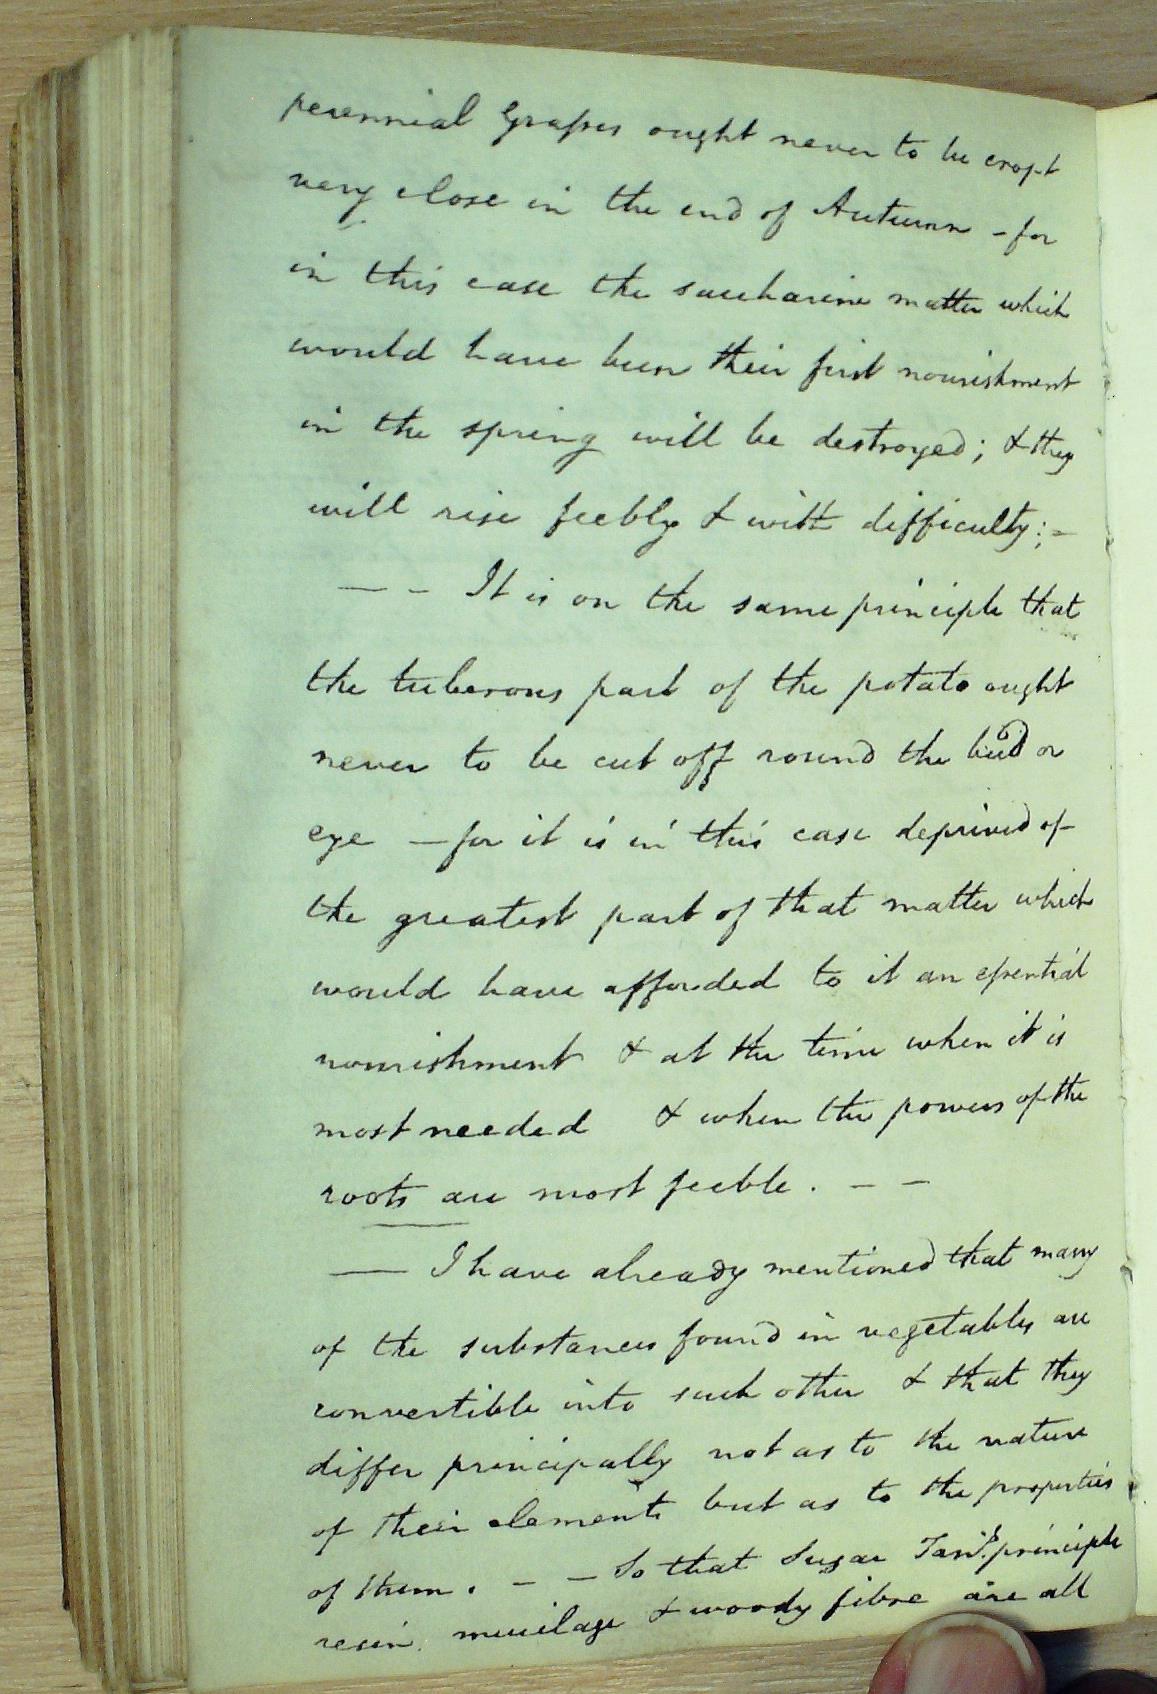 perennial Grasses ought never to be cropt
very close in the end of Autumn - for
in this case the saccharine matter which
would have been their first nourishment
in the spring will be destroyed; & they
will rise feebly & with difficulty; -
— - It is on the same principle that
the tuberous part of the potato ought
never to be cut off round the bud or
eye — for it is in this case deprived of
the greatest part of that matter which
would have afforded to it an essential
nourishment & at the time when it is
most needed & when the powers of the
roots are most feeble. — —
— I have already mentioned that many
of the substances found in vegetables are
convertible into each other & that they
differ principally not as to the nature
of their elements but as to the properties
of them. - — So that Sugar Tan.g principle
resin, mucilage & woody fibre are all